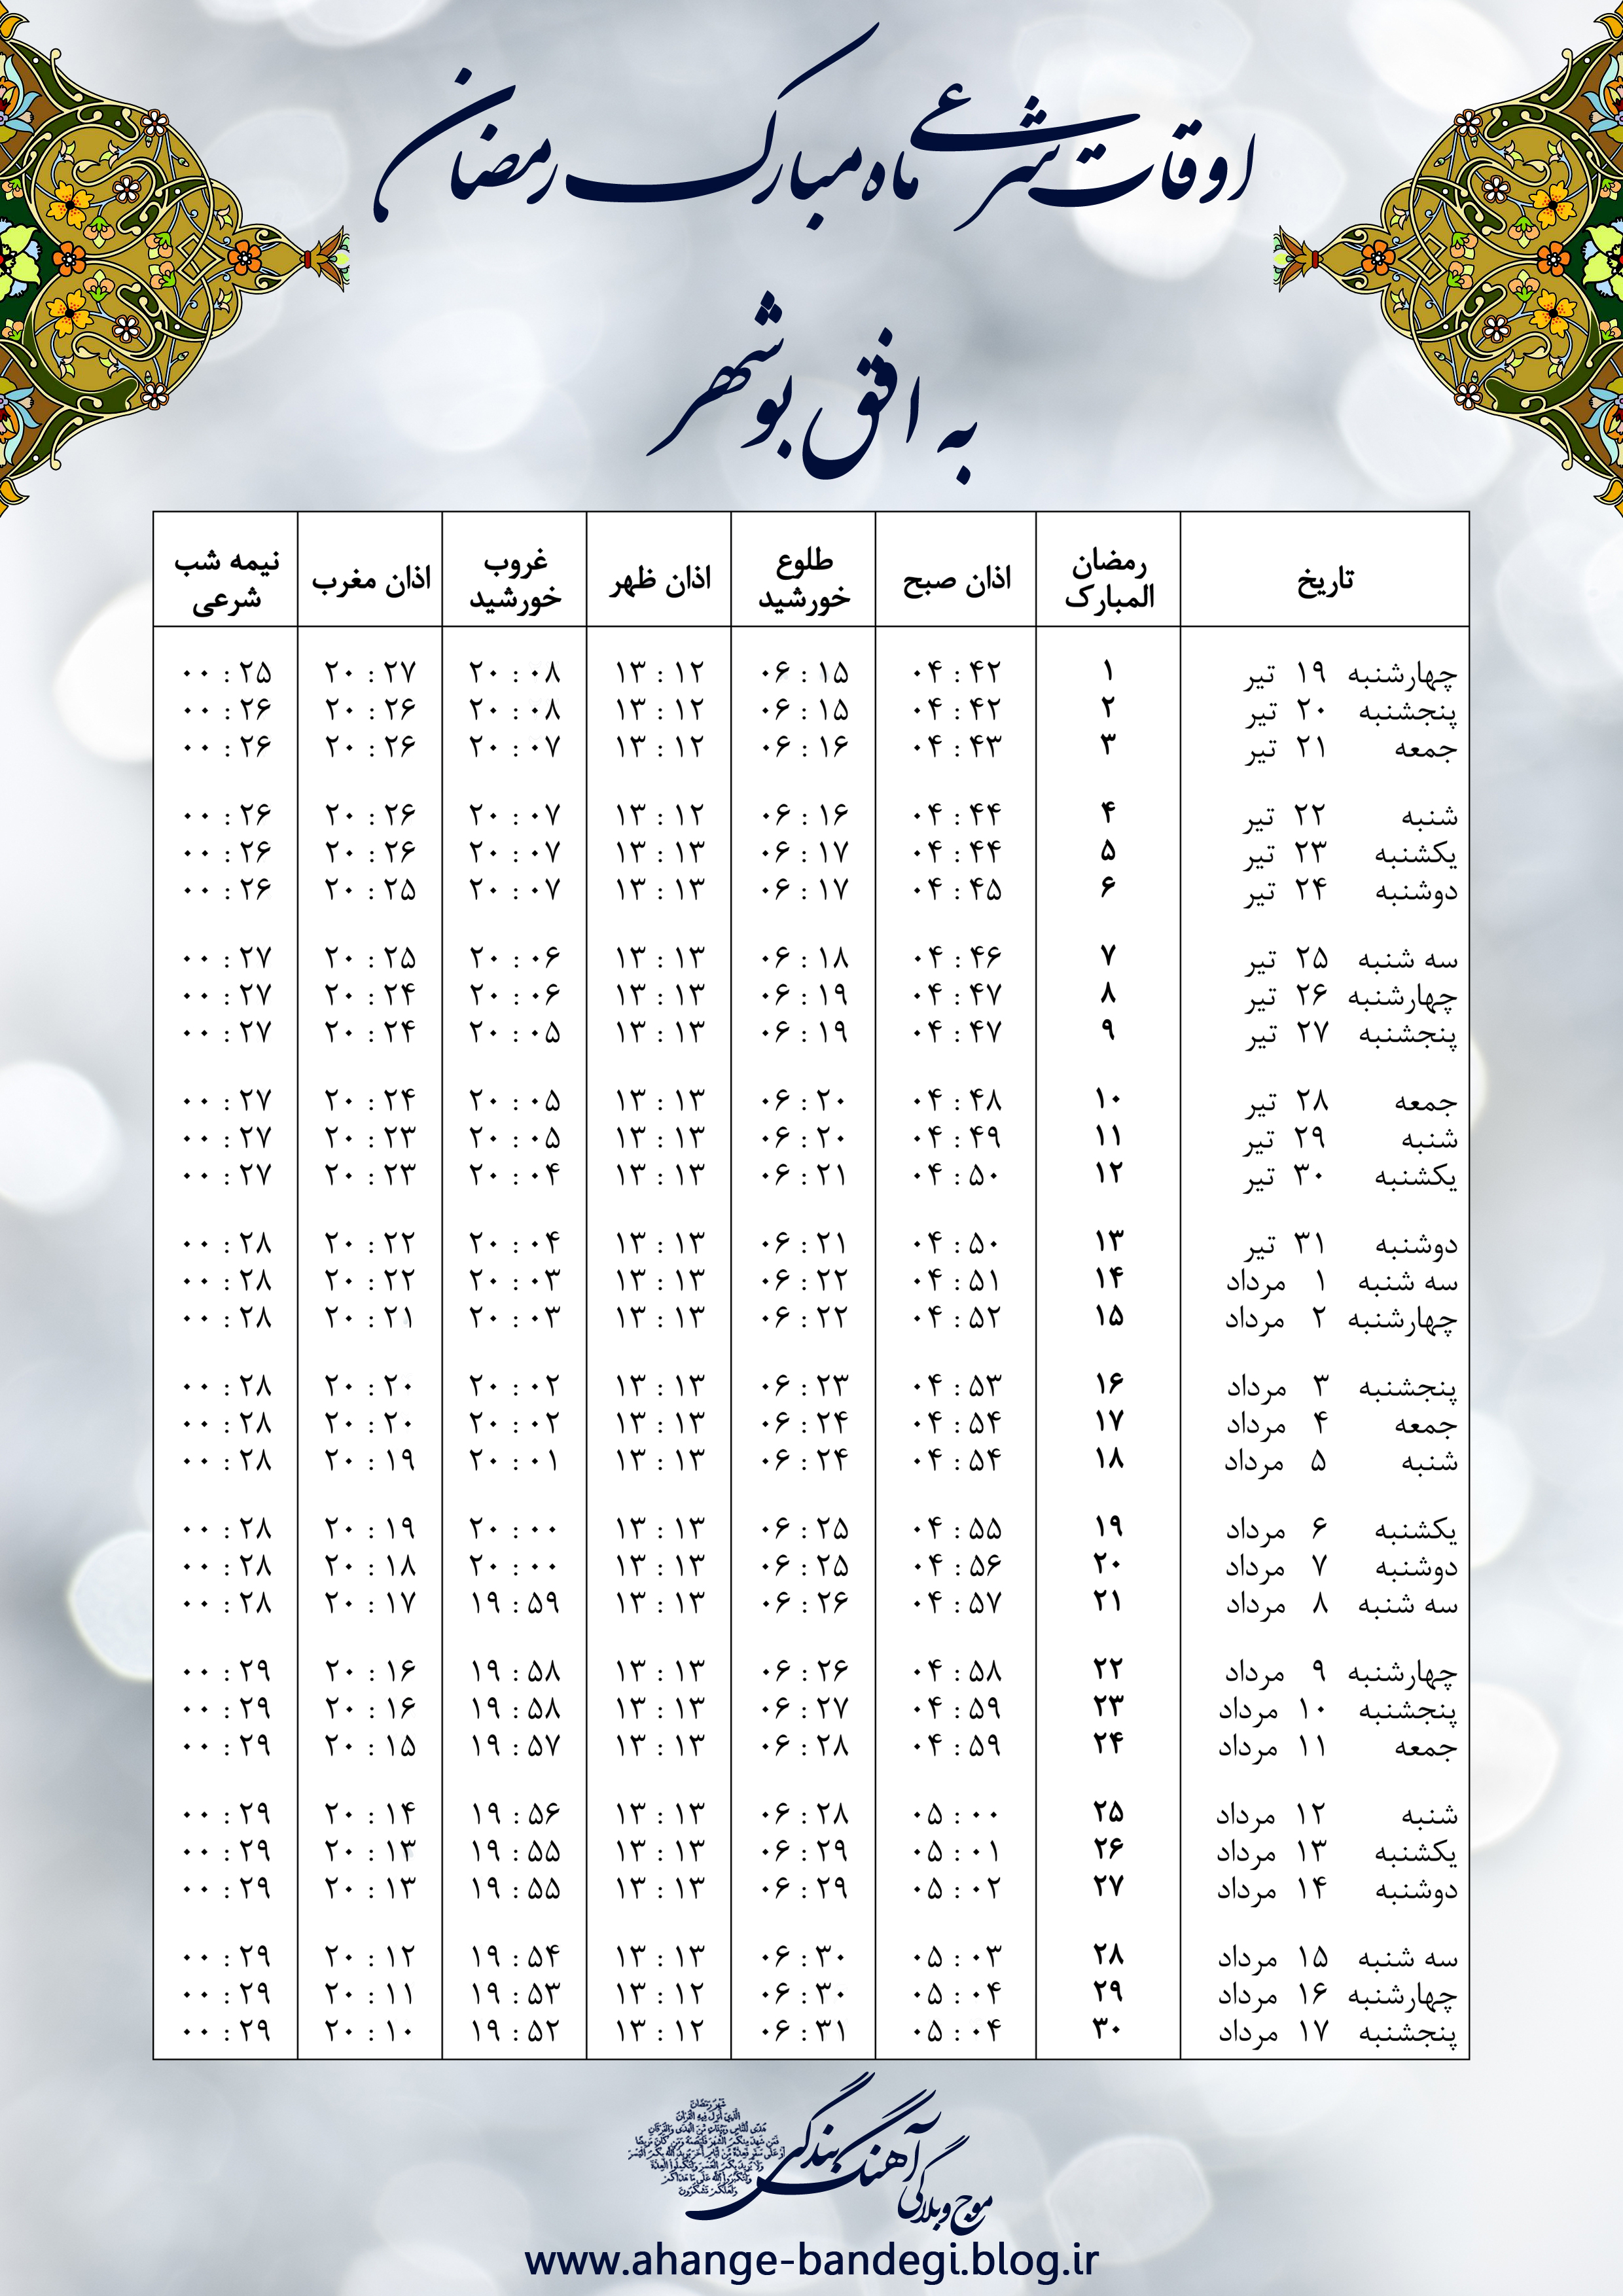 اوقات شرعی ماه مبارک رمضان
به افق بوشهر
تاریخ رمضان المبارک اذان صبح طلوع خورشید اذان ظهر غروب خورشید اذان مغرب نیمه شب شرعی
چهارشنبه ۱۹ تیر ۱ ۰۴:۴۲ ۰۶:۱۵ ۱۳:۱۲ ۲۰:۰۸ ۲۰:۲۷ ۰۰:۲۵
پنجشنبه ۲۰ تیر ۲ ۰۴:۴۲ ۰۶:۱۵ ۱۳:۱۲ ۲۰:۰۸ ۲۰:۲۶ ۰۰:۲۶
جمعه ۲۱ تیر ۳ ۰۴:۴۳ ۰۶:۱۶ ۱۳:۱۲ ۲۰:۰۷ ۲۰:۲۶ ۰۰:۲۶
شنبه ۲۲ تیر ۴ ۰۴:۴۴ ۰۶:۱۶ ۱۳:۱۲ ۲۰:۰۷ ۲۰:۲۶ ۰۰:۲۶
یکشنبه ۲۳ تیر ۵ ۰۴:۴۴ ۰۶:۱۷ ۱۳:۱۳ ۲۰:۰۷ ۲۰:۲۶ ۰۰:۲۶
دوشنبه ۲۴ تیر ۶ ۰۴:۴۵ ۰۶:۱۷ ۱۳:۱۳ ۲۰:۰۷ ۲۰:۲۵ ۰۰:۲۶
سه شنبه ۲۵ تیر ۷ ۰۴:۴۶ ۰۶:۱۸ ۱۳:۱۳ ۲۰:۰۶ ۲۰:۲۵ ۰۰:۲۷
چهارشنبه ۲۶ تیر ۸ ۰۴:۴۷ ۰۶:۱۹ ۱۳:۱۳ ۲۰:۰۶ ۲۰:۲۴ ۰۰:۲۷
پنجشنبه ۲۷ تیر ۹ ۰۴:۴۷ ۰۶:۱۹ ۱۳:۱۳ ۲۰:۰۵ ۲۰:۲۴ ۰۰:۲۷
جمعه ۲۸ تیر ۱۰ ۰۴:۴۸ ۰۶:۲۰ ۱۳:۱۳ ۲۰:۰۵ ۲۰:۲۴ ۰۰:۲۷
شنبه ۲۹ تیر ۱۱ ۰۴:۴۹ ۰۶:۲۰ ۱۳:۱۳ ۲۰:۰۵ ۲۰:۲۳ ۰۰:۲۷
یکشنبه ۳۰ تیر ۱۲ ۰۴:۵۰ ۰۶:۲۱ ۱۳:۱۳ ۲۰:۰۴ ۲۰:۲۳ ۰۰:۲۷
دوشنبه ۳۱ تیر ۱۳ ۰۴:۵۰ ۰۶:۲۱ ۱۳:۱۳ ۲۰:۰۴ ۲۰:۲۲ ۰۰:۲۸
سه شنبه ۱ مرداد ۱۴ ۰۴:۵۱ ۰۶:۲۲ ۱۳:۱۳ ۲۰:۰۳ ۲۰:۲۲ ۰۰:۲۸
چهارشنبه ۲ مرداد ۱۵ ۰۴:۵۲ ۰۶:۲۲ ۱۳:۱۳ ۲۰:۰۳ ۲۰:۲۱ ۰۰:۲۸
پنجشنبه ۳ مرداد ۱۶ ۰۴:۵۳ ۰۶:۲۳ ۱۳:۱۳ ۲۰:۰۲ ۲۰:۲۰ ۰۰:۲۸
جمعه ۴ مرداد ۱۷ ۰۴:۵۴ ۰۶:۲۴ ۱۳:۱۳ ۲۰:۰۲ ۲۰:۲۰ ۰۰:۲۸
شنبه ۵ مرداد ۱۸ ۰۴:۵۴ ۰۶:۲۴ ۱۳:۱۳ ۲۰:۰۱ ۲۰:۱۹ ۰۰:۲۸
یکشنبه ۶ مرداد ۱۹ ۰۴:۵۵ ۰۶:۲۵ ۱۳:۱۳ ۲۰:۰۰ ۲۰:۱۹ ۰۰:۲۸
دوشنبه ۷ مرداد ۲۰ ۰۴:۵۶ ۰۶:۲۵ ۱۳:۱۳ ۲۰:۰۰ ۲۰:۱۸ ۰۰:۲۸
سه شنبه ۸ مرداد ۲۱ ۰۴:۵۷ ۰۶:۲۶ ۱۳:۱۳ ۱۹:۵۹ ۲۰:۱۷ ۰۰:۲۸
چهارشنبه ۹ مرداد ۲۲ ۰۴:۵۸ ۰۶:۲۶ ۱۳:۱۳ ۱۹:۵۸ ۲۰:۱۶ ۰۰:۲۹
پنجشنبه ۱۰ مرداد ۲۳ ۰۴:۵۹ ۰۶:۲۷ ۱۳:۱۳ ۱۹:۵۸ ۲۰:۱۶ ۰۰:۲۹
جمعه ۱۱ مرداد ۲۴ ۰۴:۵۹ ۰۶:۲۸ ۱۳:۱۳ ۱۹:۵۷ ۲۰:۱۵ ۰۰:۲۹
شنبه ۱۲ مرداد ۲۵ ۰۵:۰۰ ۰۶:۲۸ ۱۳:۱۳ ۱۹:۵۶ ۲۰:۱۴ ۰۰:۲۹
یکشنبه ۱۳ مرداد ۲۶ ۰۵:۰۱ ۰۶:۲۹ ۱۳:۱۳ ۱۹:۵۵ ۲۰:۱۳ ۰۰:۲۹
دوشنبه ۱۴ مرداد ۲۷ ۰۵:۰۲ ۰۶:۲۹ ۱۳:۱۳ ۱۹:۵۵ ۲۰:۱۳ ۰۰:۲۹
سه شنبه ۱۵ مرداد ۲۸ ۰۵:۰۳ ۰۶:۳۰ ۱۳:۱۳ ۱۹:۵۴ ۲۰:۱۲ ۰۰:۲۹
چهارشنبه ۱۶ مرداد ۲۹ ۰۵:۰۴ ۰۶:۳۰ ۱۳:۱۲ ۱۹:۵۳ ۲۰:۱۱ ۰۰:۲۹
پنجشنبه ۱۷ مرداد ۳۰ ۰۵:۰۴ ۰۶:۳۱ ۱۳:۱۲ ۱۹:۵۲ ۲۰:۱۰ ۰۰:۲۹
موج وبلاگی آهنگ بندگی
www.ahange-bandegi.blog.ir